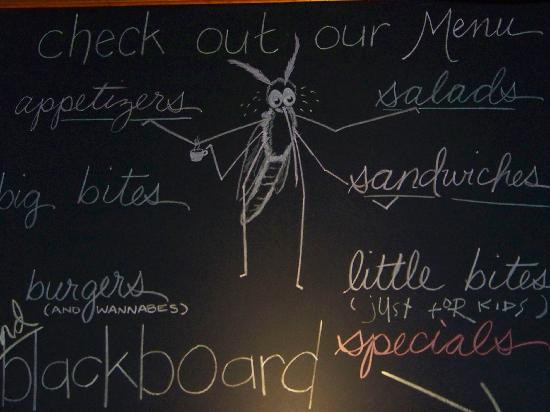 check out our Menu
appetizers
salads
big bites
sandwiches
burgers
(AND WANNABES)
little bites
(just FOR KIDS)
and
blackboard
specials